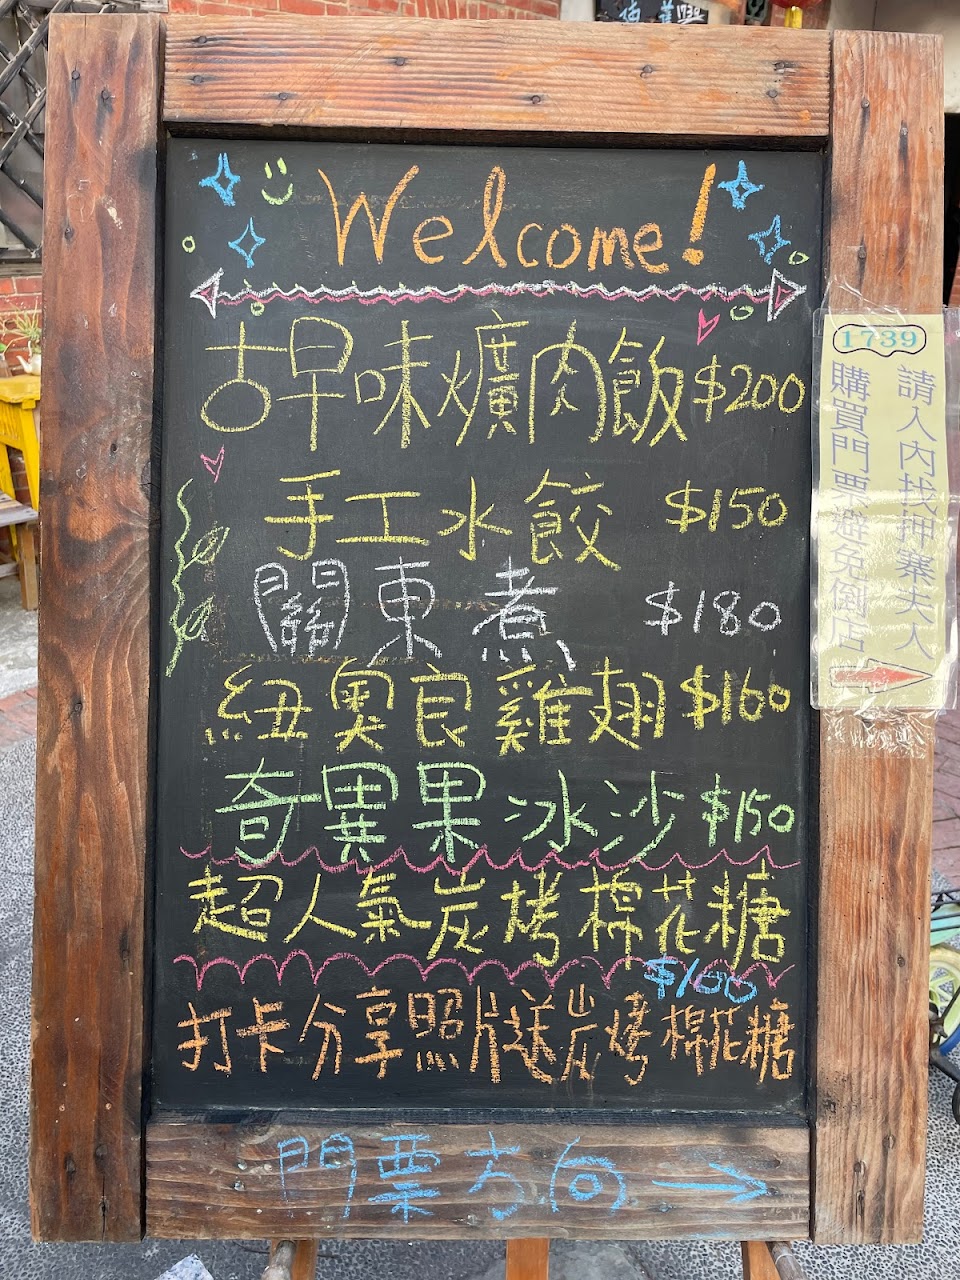 Welcome!
古早味爌肉飯$200
手工水餃 $150
關東煮 $180
紐奧良雞翅$160
奇異果冰沙$150
超人氣炭烤棉花糖
$100
打卡分享照片送炭烤棉花糖
門票方向→
1739
請入內找押寨夫人
購買門票避免倒店